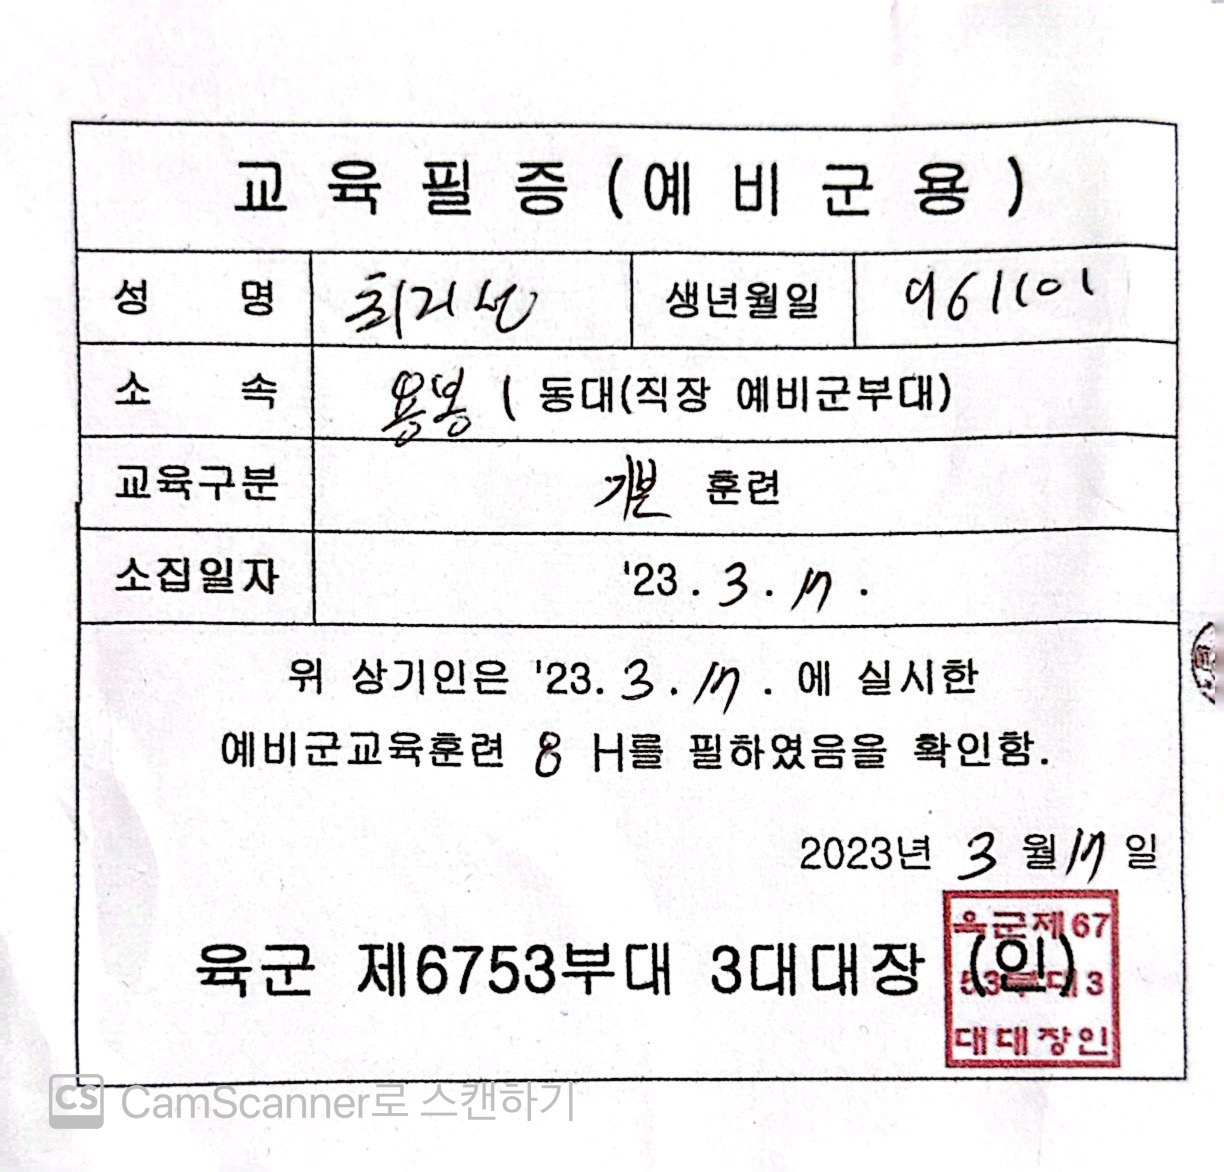 교육필증(예비군용)
성 명 최지선 생년월일 961101
소 속 용봉 1 동대(직장 예비군부대)
교육구분 기본 훈련
소집일자 '23. 3. 17.
위 상기인은 '23. 3. 17. 에 실시한
예비군교육훈련 8 H를 필하였음을 확인함.
2023년 3 월 17 일
육군 제6753부대 3대대장 (인)
육군제67
53부대3
대대장인
CS CamScanner로 스캔하기